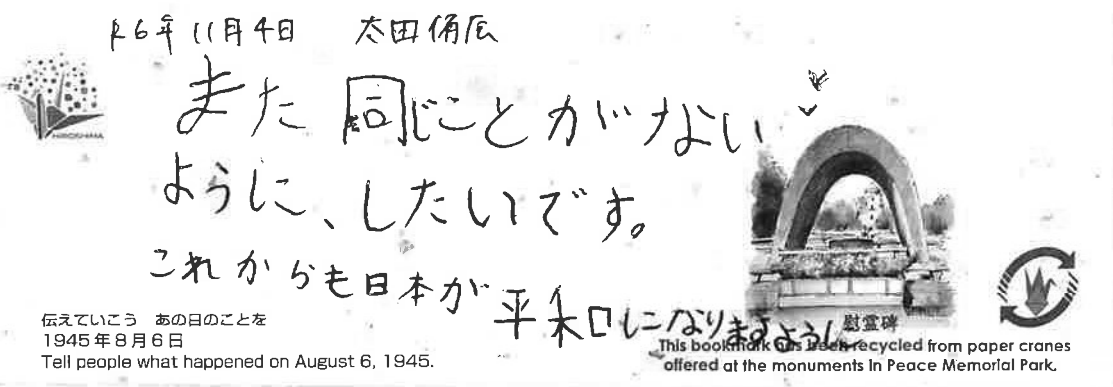 R6年11月4日 太田侑辰
また同じことがない
ように、したいです。
これからも日本が平和になりますように
HIROSHIMA
伝えていこう あの日のことを
1945年8月6日
Tell people what happened on August 6, 1945.
慰霊碑
This bookmark has been recycled from paper cranes
offered at the monuments in Peace Memorial Park.